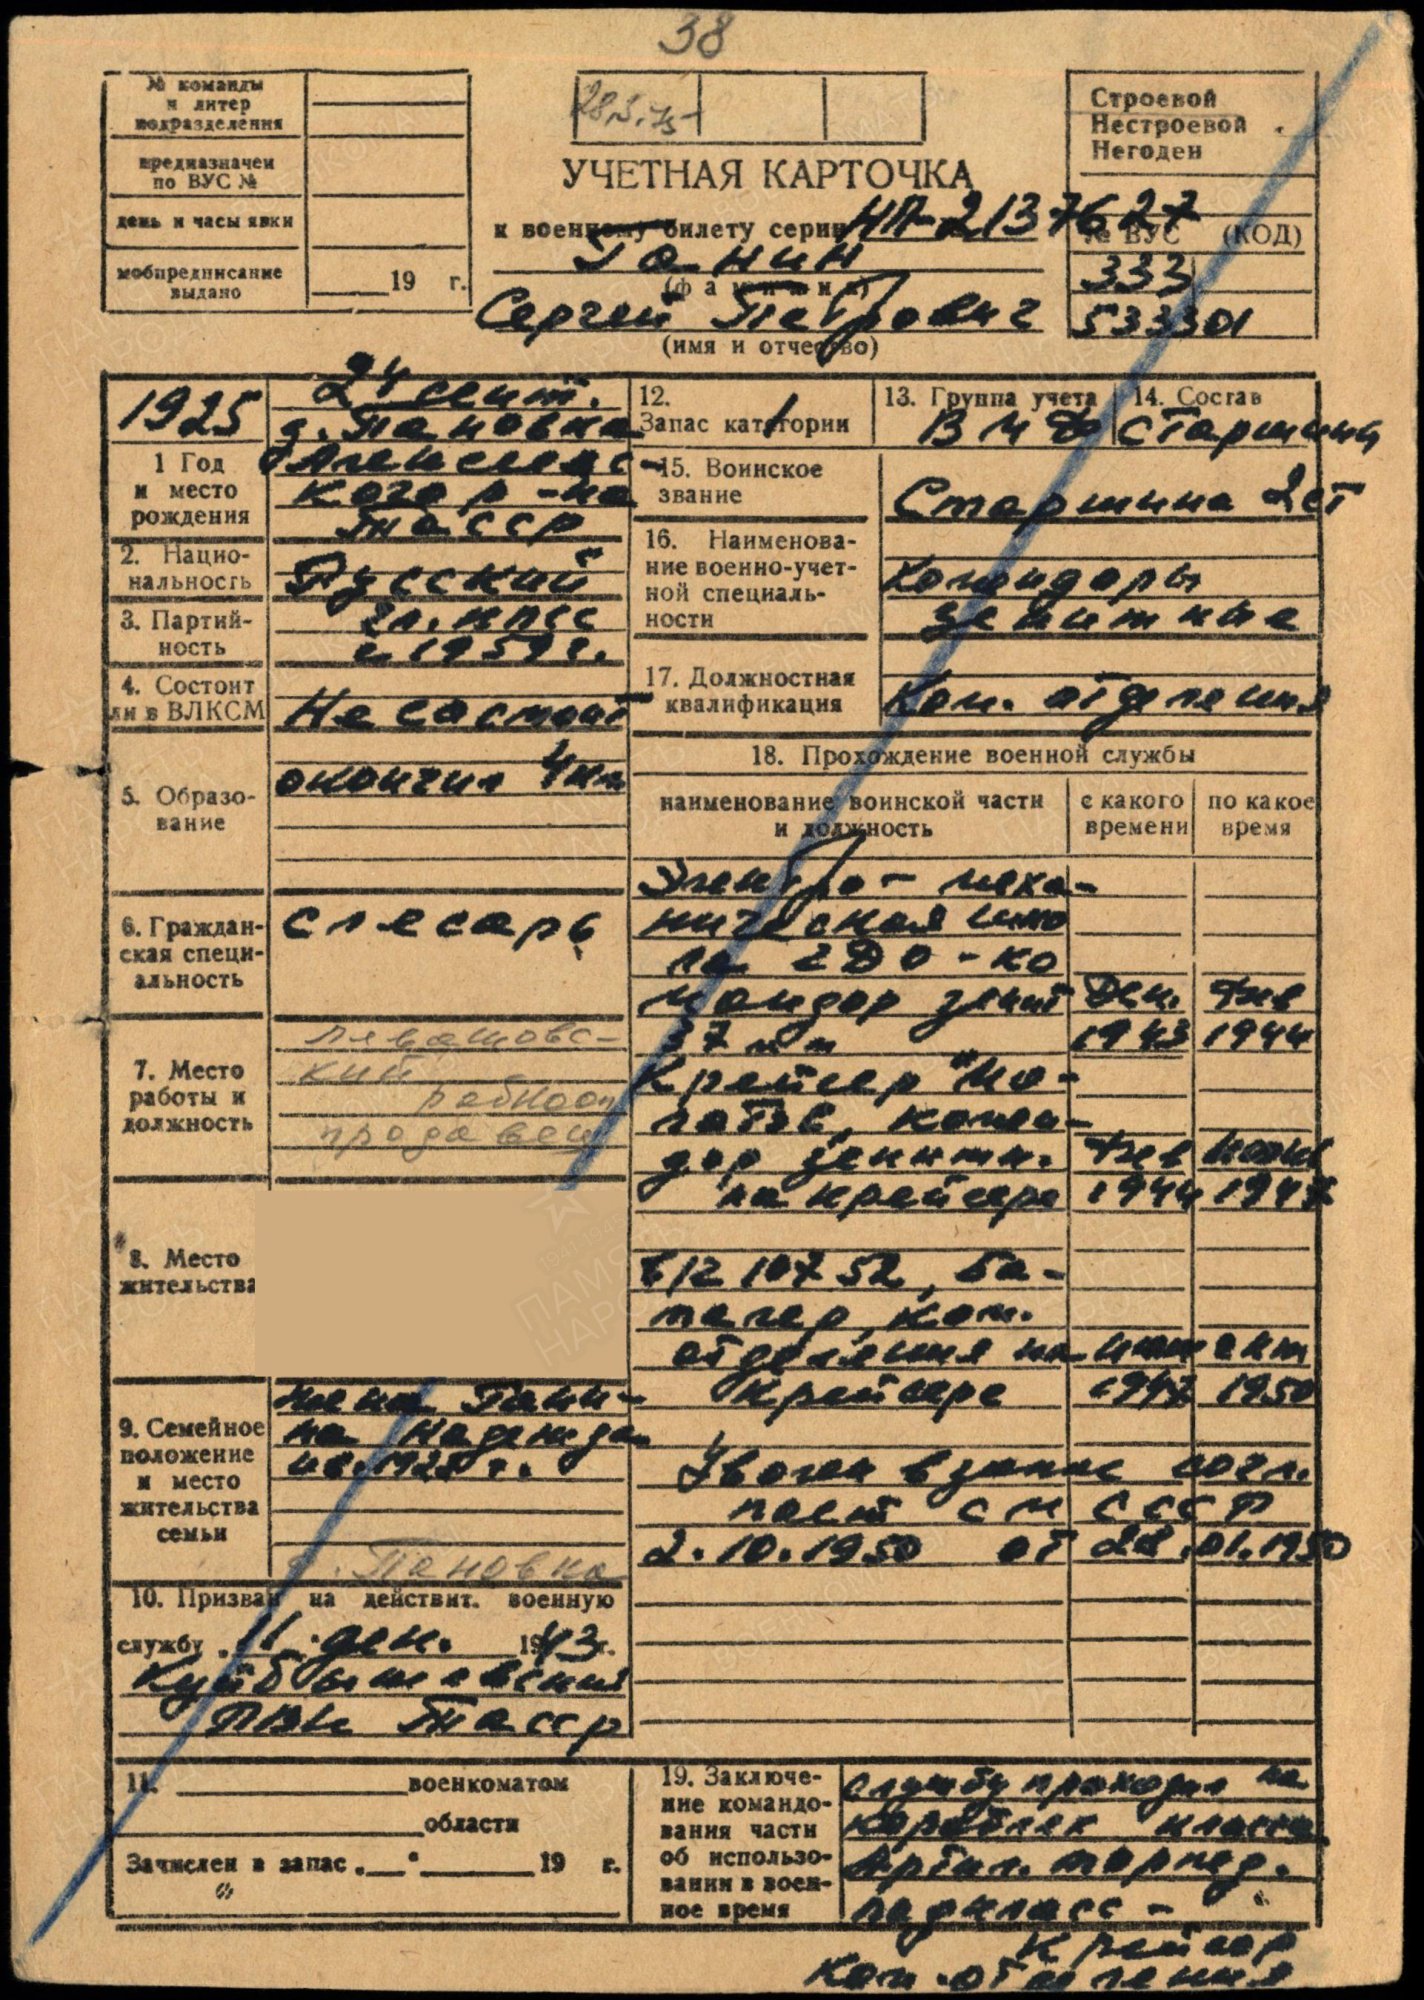 38
№ команды
и литер
подразделения
предназначен
по ВУС №
день и часы явки
мобпредписание
выдано
19 г.
28.3.75
Строевой
Нестроевой
Негоден
УЧЕТНАЯ КАРТОЧКА
к военному билету серии НП-2137627
Ганин
(фамилия)
Сергей Петрович
(имя и отчество)
№ ВУС (КОД)
333
533301
1925
1 Год
и место
рождения
24 сент.
д. Пановка
Алексеевс-
кого р-на
ТАССР
2. Нацио-
нальность
Русский
3. Партий-
ность
чл. КПСС
с 1959 г.
4. Состоит
ли в ВЛКСМ
Не состоит
5. Образо-
вание
окончил 4 кл
6. Граждан-
ская специ-
альность
слесарь
7. Место
работы и
должность
кий
рабкооп
продавец
8. Место
жительства
9. Семейное
положение
и место
жительства
семьи
жена Гани-
на Надежда
д. Пановка
10. Призван на действит. военную
службу 11 дек. 1943 г.
Куйбышевским
РВК ТАССР
11. военкоматом
области
Зачислен в запас . 19 г.
12.
Запас категории 1
13. Группа учета
ВМФ
14. Состав
старшины
15. Воинское
звание
Старшина 2 ст
16. Наименова-
ние военно-учет-
ной специаль-
ности
Командоры
зенитные
17. Должностная
квалификация
Ком. отделения
18. Прохождение военной службы
наименование воинской части
и должность
с какого
времени
по какое
время
Электро-меха-
ническая шко
ла ЧДО-ко
мандор зенит Дек. Фев
37 мм 1943 1944
Крейсер "Мо-
лотов, комен-
дор зенитн. Фев июль
на крейсере 1944 1947
в/ч 10752, ба-
талер, ком.
отделения на июль сент
крейсере 1947 1950
Уволен в запас согл.
пост СМ СССР
2.10.1950 от 28.01.1950
19. Заключе-
ние командо-
вания части
об использо-
вании в воен-
ное время
службу проходил на
кораблях класса
Артил. торпед.
подкласс -
крейсер
Ком. отделения